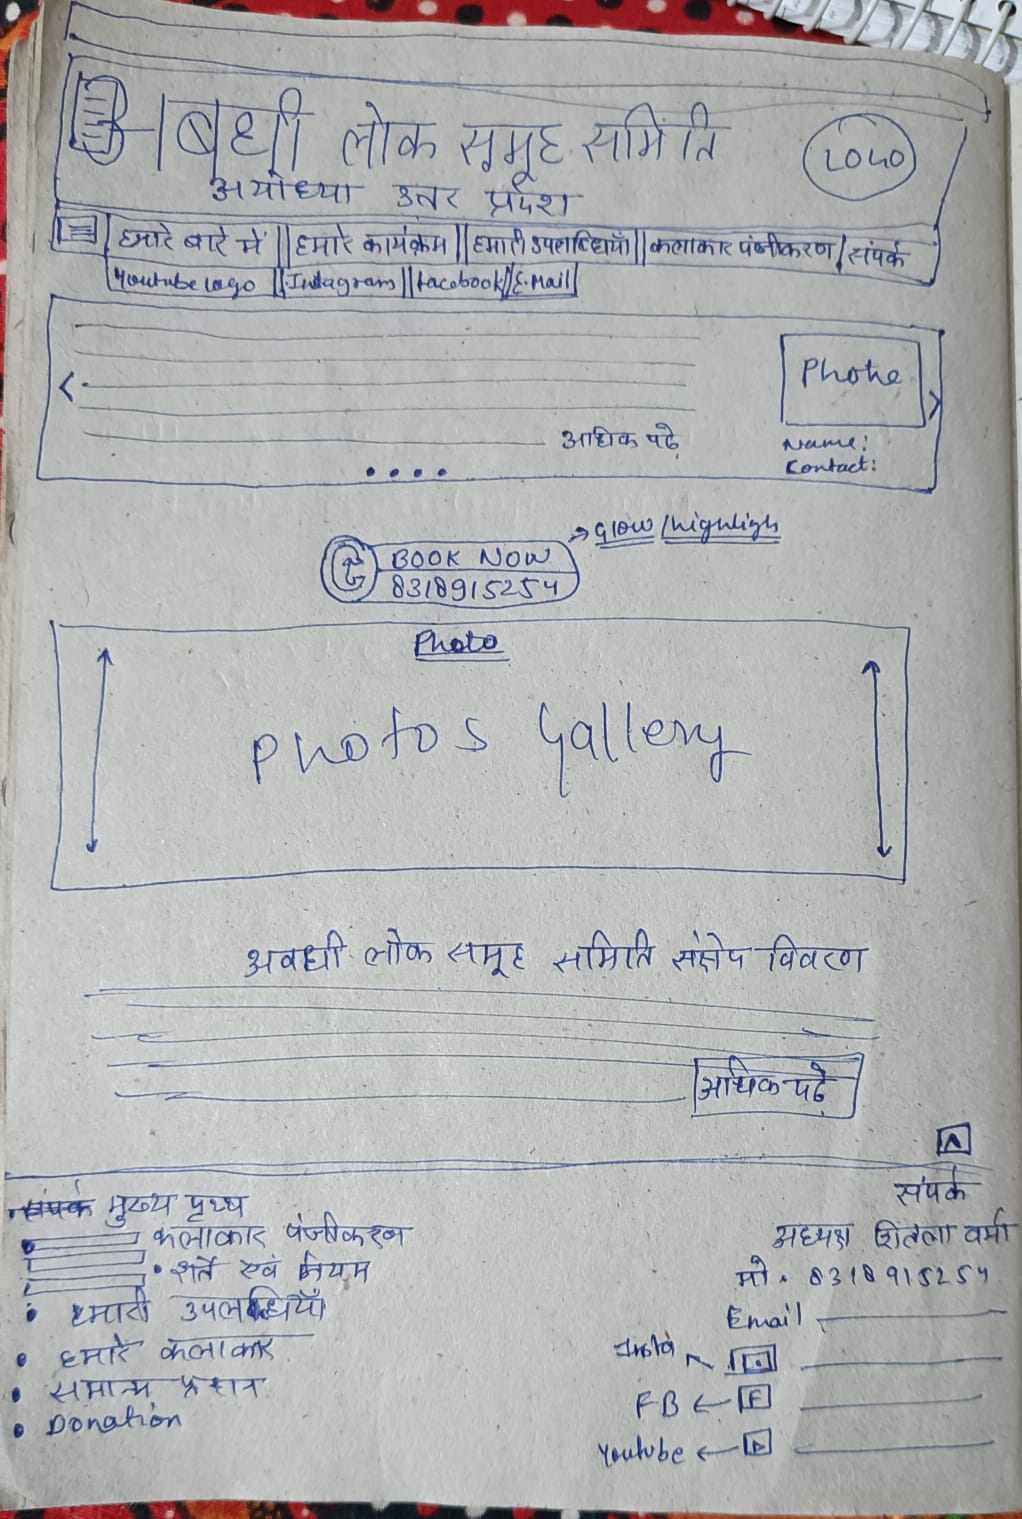 अवधी लोक समूह समिति LOGO
अयोध्या उत्तर प्रदेश
हमारे बारे में || हमारे कार्यक्रम || हमारी उपलब्धियाँ || कलाकार पंजीकरण / संपर्क
Youtube logo || Instagram || facebook || E-Mail
Photo
अधिक पढे़
Name:
Contact:
→ Glow / highligh
BOOK NOW
8318915254
Photo
Photos Gallery
अवधी लोक समूह समिति संक्षेप विवरण
अधिक पढे़
संपर्क मुख्य पृष्ठ
कलाकार पंजीकरण
• शर्ते एवं नियम
• हमारी उपलब्धियाँ
• हमारे कलाकार
• समान्य प्रशन
• Donation
संपर्क
अध्यक्ष शितला वर्मा
मो. 8318915254
Email
Insta
FB ← F
Youtube ←